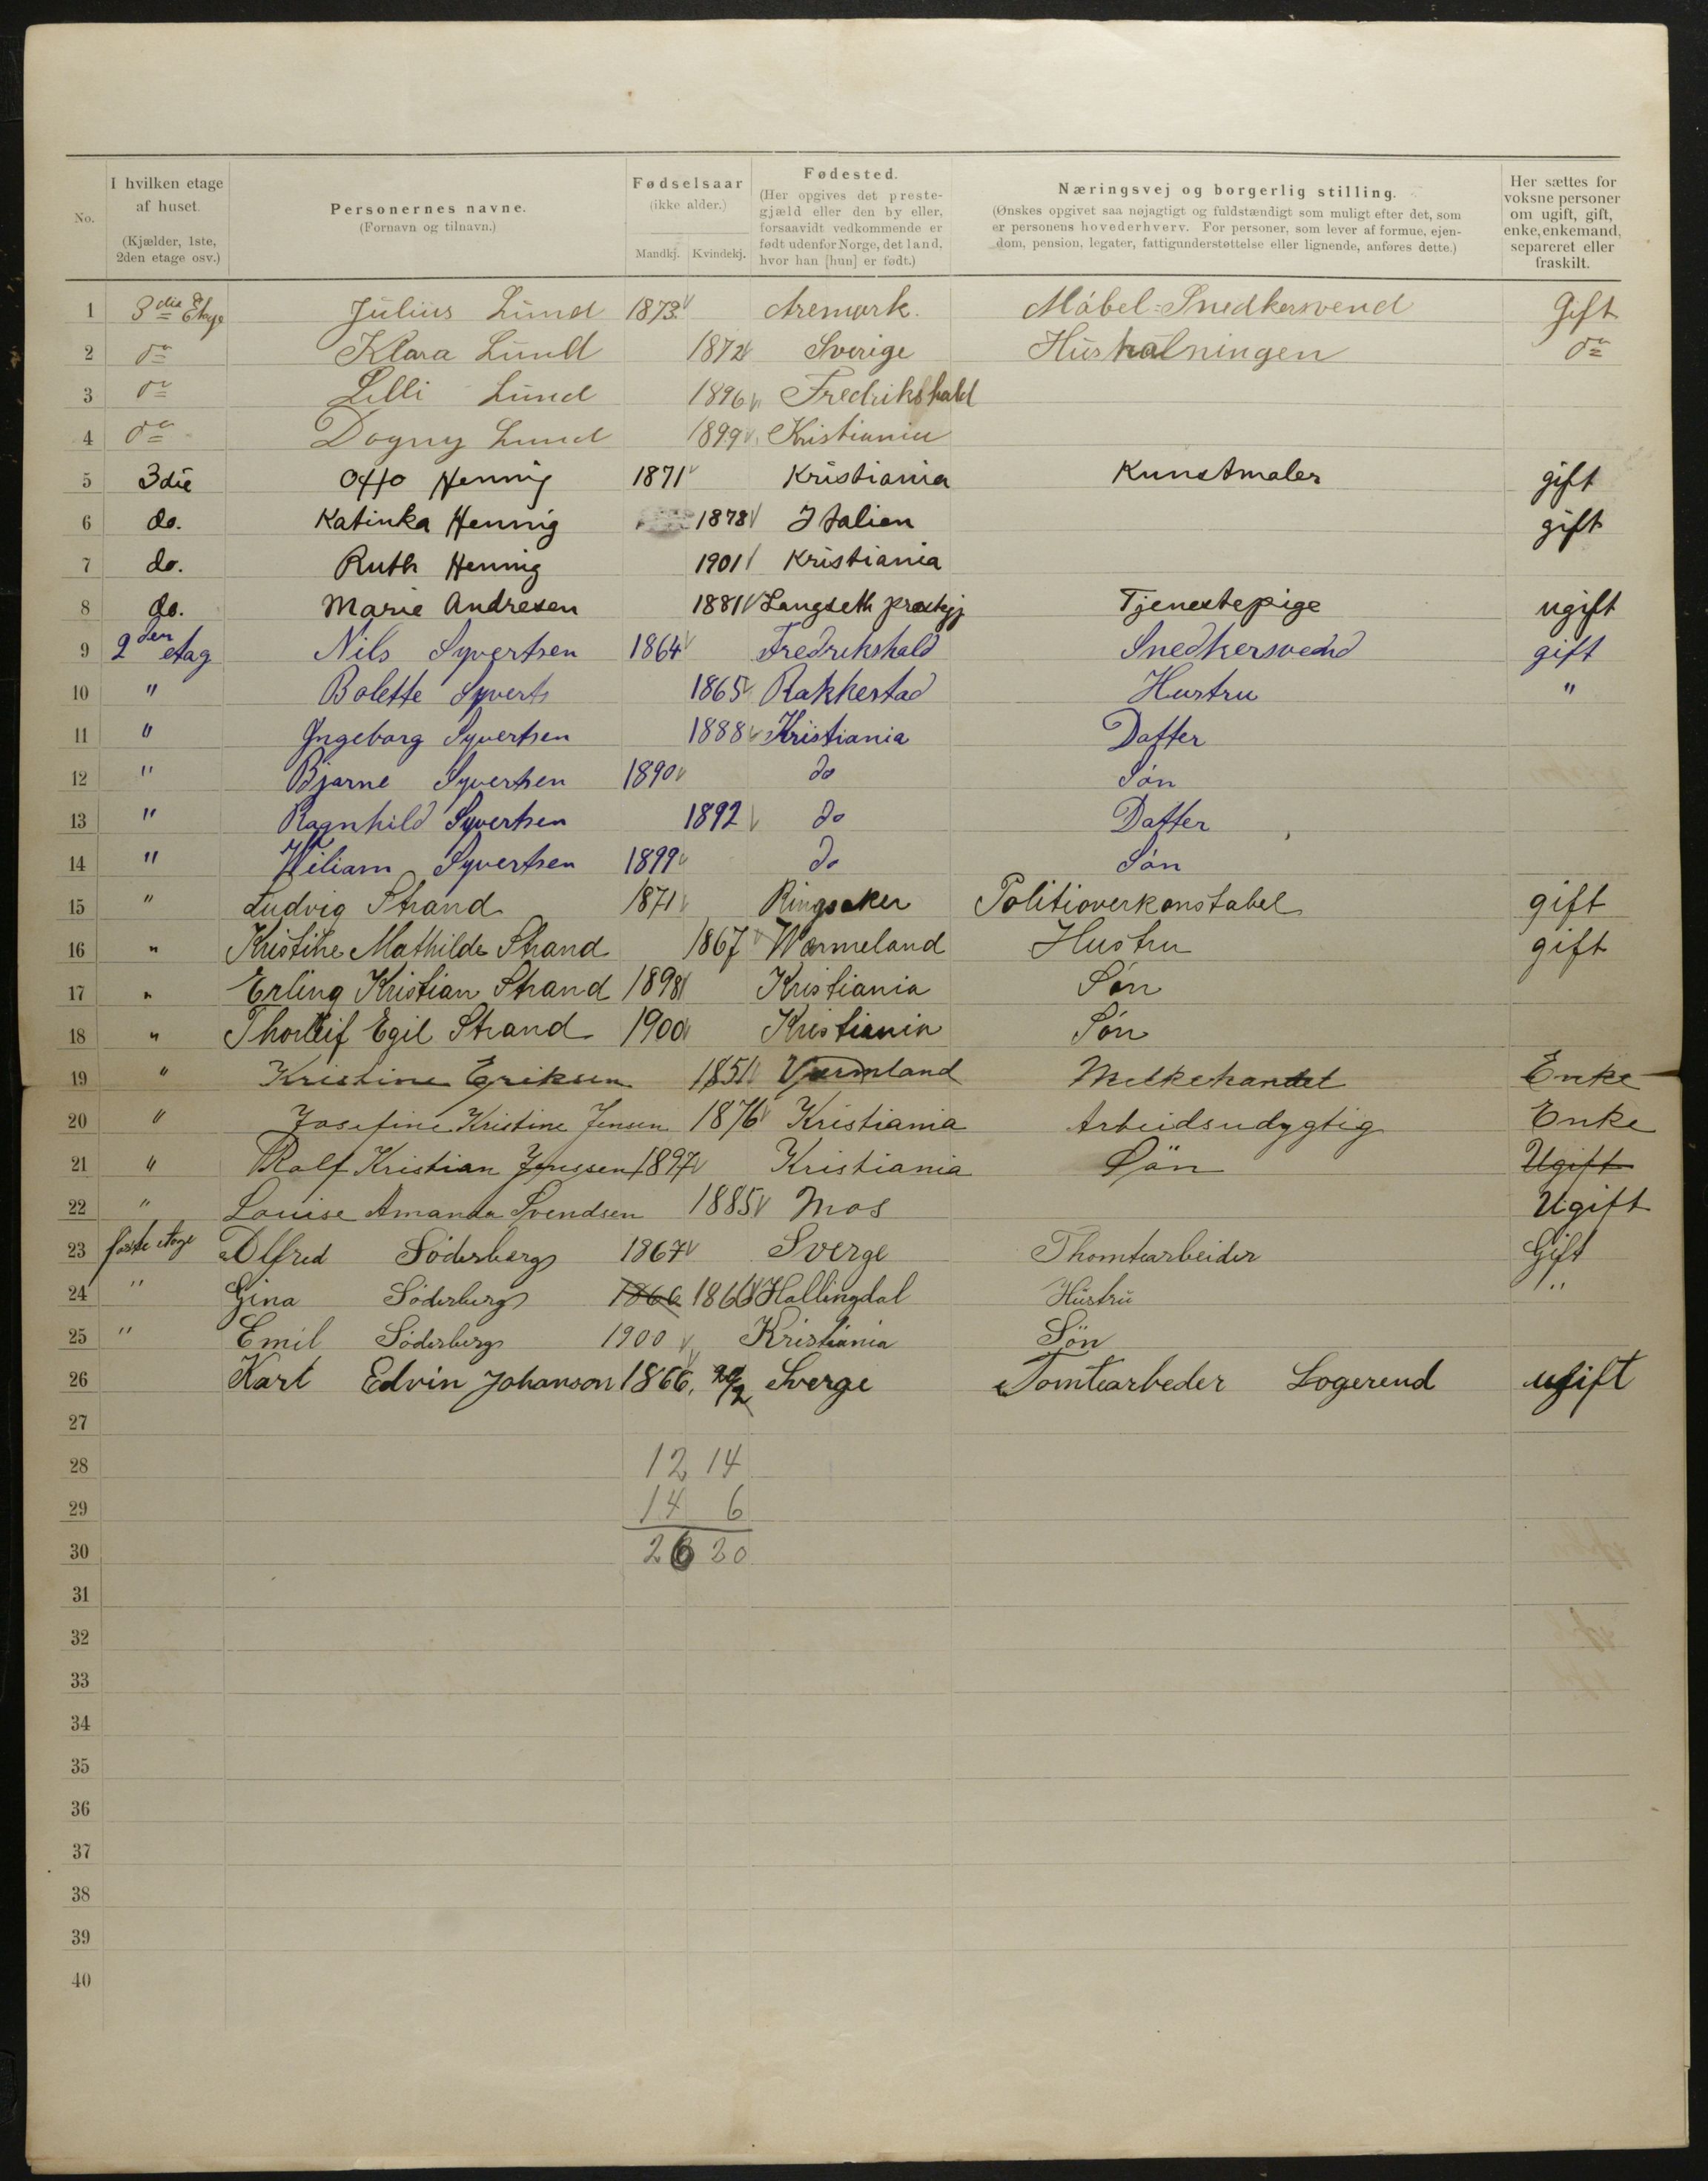 No. I hvilken etage af huset. (Kjælder, 1ste, 2den etage osv.) Personernes navne. (Fornavn og tilnavn.) Fødselsaar (ikke alder.) Mandkj. Kvindekj. Fødested. (Her opgives det prestegjæld eller den by eller, forsaavidt vedkommende er født udenfor Norge, det land, hvor han [hun] er født.) Næringsvej og borgerlig stilling. (Ønskes opgivet saa nøjagtigt og fuldstændigt som muligt efter det, som er personens hovederhverv. For personer, som lever af formue, ejendom, pension, legater, fattigunderstøttelse eller lignende, anføres dette.) Her sættes for voksne personer om ugift, gift, enke, enkemand, separeret eller fraskilt.
1 3die Etage Julius Lund 1873 Aremark. Möbel-Snedkersvend Gift
2 do Klara Lund 1872 Sverige Husholningen do
3 do Lilli Lund 1896 Fredrikshald
4 do Dagny Lund 1899 Kristiania
5 3die Otto Hennig 1871 Kristiania Kunstmaler gift
6 do. Katinka Hennig 1878 Italien gift
7 do. Ruth Hennig 1901 Kristiania
8 do. Marie Andresen 1881 Langseth prestgj Tjenestepige ugift
9 2den etag Nils Syvertsen 1864 Fredrikshald Snedkersvend gift
10 " Bolette Syverts 1865 Rakkestad Hustru "
11 " Ingeborg Syvertsen 1888 Kristiania Datter
12 " Bjarne Syvertsen 1890 do Søn
13 " Ragnhild Syvertsen 1892 do Datter
14 " Wiliam Syvertsen 1899 do Søn
15 " Ludvig Strand 1871 Ringsaker Politioverkonstabel gift
16 " Kristine Mathilde Strand 1867 Wærmeland Hustru gift
17 " Erling Kristian Strand 1898 Kristiania Søn
18 " Thorleif Egil Strand 1900 Kristiania Søn
19 " Kristine Eriksen 1851 Vermland Melkehandel Enke
20 " Josefine Kristine Jensen 1876 Kristiania Arbeidsudygtig Enke
21 " Ralf Kristian Jenssen 1897 Kristiania Søn Ugift
22 " Louise Amanda Svendsen 1885 Mos Ugift
23 første etage Alfred Söderberg 1867 Sverge Thomtearbeider Gift
24 " Gina Söderberg 1866 1866 Hallingdal Hustru "
25 " Emil Söderberg 1900 Kristiania Søn
26 Karl Edvin Johanson 1866, 20/2 Sverge Tomtearbeder Logerend ugift
27
28 12 14
29 14 6
30 26 20
31
32
33
34
35
36
37
38
39
40